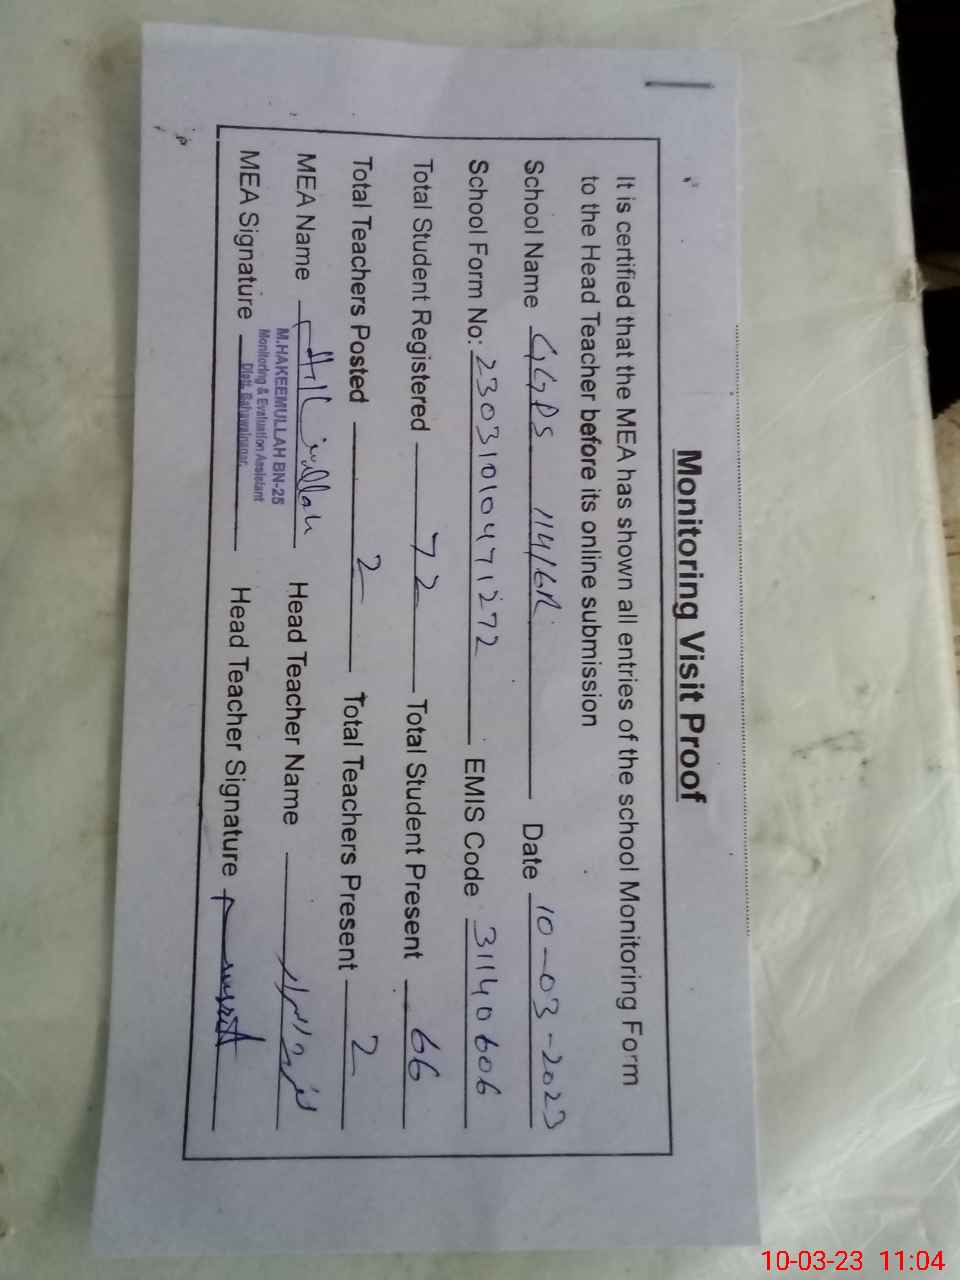 Monitoring Visit Proof
It is certified that the MEA has shown all entries of the school Monitoring Form
to the Head Teacher before its online submission
School Name GGPS 114/6R Date 10-03-2023
School Form No: 23031010471272 EMIS Code 31140606
Total Student Registered 72 Total Student Present 66
Total Teachers Posted 2 Total Teachers Present 2
MEA Name Head Teacher Name
M.HAKEEMULLAH BN-25
Monitoring & Evaluation Assistant
Distt. Bahawalnagar.
MEA Signature Head Teacher Signature
10-03-23 11:04